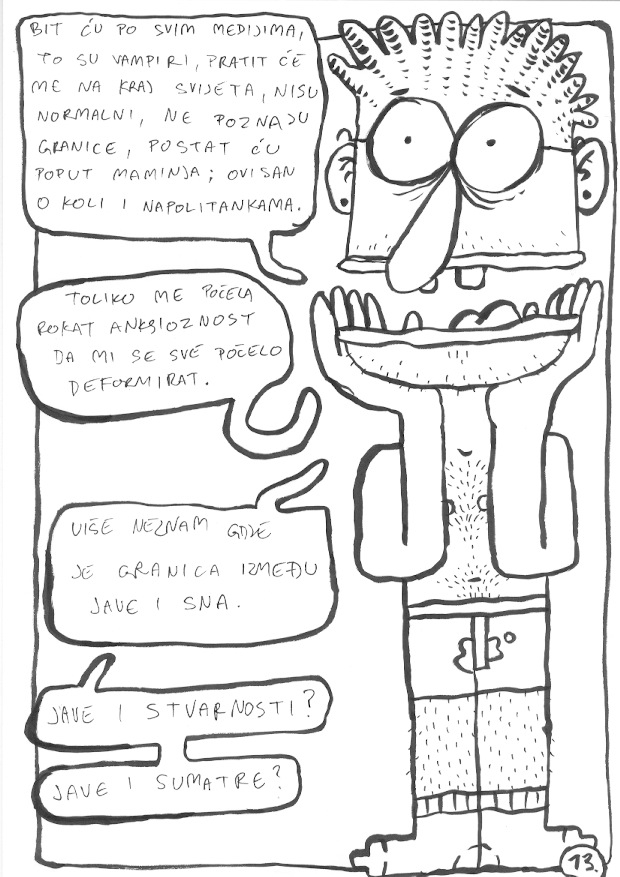 BIT ĆU PO SVIM MEDIJIMA,
TO SU VAMPIRI, PRATIT ĆE
ME NA KRAJ SVIJETA, NISU
NORMALNI, NE POZNAJU
GRANICE, POSTAT ĆU
POPUT MAMINJA; OVISAN
O KOLI I NAPOLITANKAMA.
TOLIKO ME POČELA
ROKAT ANKSIOZNOST
DA MI SE SVE POČELO
DEFORMIRAT.
VIŠE NEZNAM GDJE
JE GRANICA IZMEĐU
JAVE I SNA.
JAVE I STVARNOSTI?
JAVE I SUMATRE?
13.